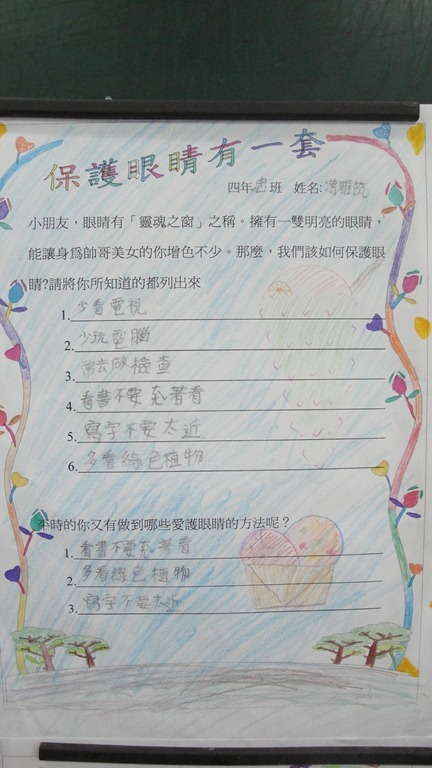 保護眼睛有一套
四年 班 姓名:
小朋友，眼睛有「靈魂之窗」之稱。擁有一雙明亮的眼睛，
能讓身為帥哥美女的你增色不少。那麼，我們該如何保護眼
睛?請將你所知道的都列出來
1. 少看電視
2. 少玩電腦
3. 常去做檢查
4. 看書不要 著看
5. 寫字不要太近
6. 多看綠色植物
平時的你又有做到哪些愛護眼睛的方法呢？
1. 看書不要 著看
2. 多看綠色植物
3. 寫字不要太近